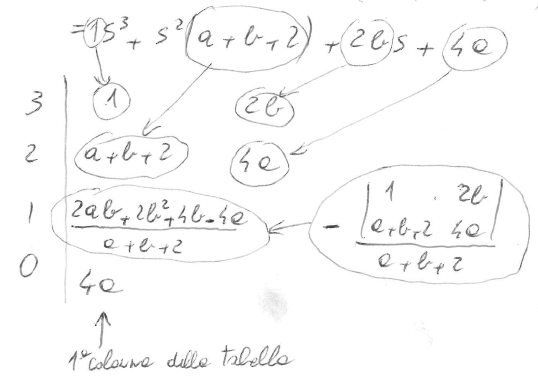 = 1s³ + s²(a+b+2) + 2bs + 4a
3 1 2b
2 a+b+2 4a
1 (2ab+2b²+4b-4a)/(a+b+2) - |1 . 2b; a+b+2 4a|/(a+b+2)
0 4a
1ª colonna della tabella